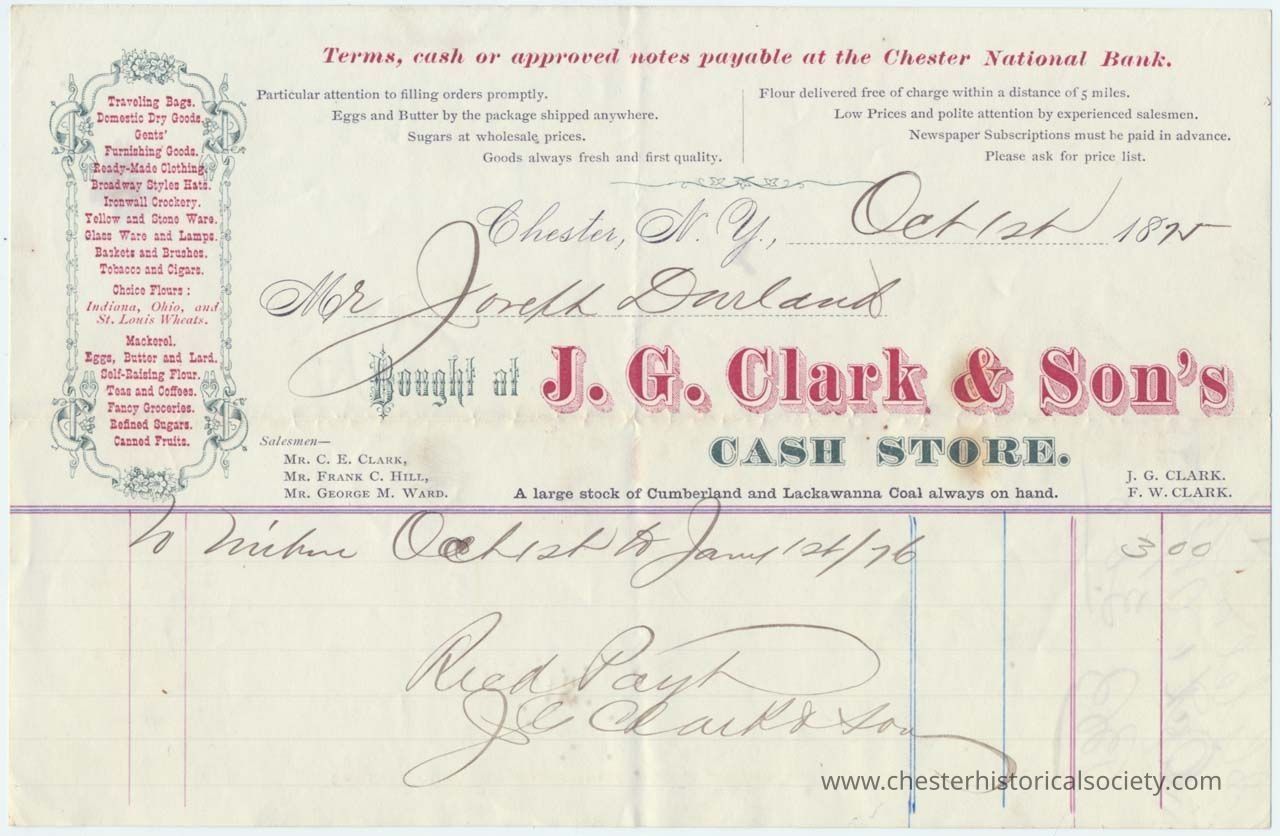 Terms, cash or approved notes payable at the Chester National Bank.
Particular attention to filling orders promptly.
Eggs and Butter by the package shipped anywhere.
Sugars at wholesale prices.
Goods always fresh and first quality.
Flour delivered free of charge within a distance of 5 miles.
Low Prices and polite attention by experienced salesmen.
Newspaper Subscriptions must be paid in advance.
Please ask for price list.
Traveling Bags.
Domestic Dry Goods.
Gents'
Furnishing Goods.
Ready-Made Clothing.
Broadway Styles Hats.
Ironwall Crockery.
Yellow and Stone Ware.
Glass Ware and Lamps.
Baskets and Brushes.
Tobacco and Cigars.
Choice Flours:
Indiana, Ohio, and
St. Louis Wheats.
Mackerel.
Eggs, Butter and Lard.
Self-Raising Flour.
Teas and Coffees.
Fancy Groceries.
Refined Sugars.
Canned Fruits.
Chester, N. Y., Oct 1st 1875
Mr Joseph Durland
Bought at J. G. Clark & Son's
CASH STORE.
Salesmen—
MR. C. E. CLARK,
MR. FRANK C. HILL,
MR. GEORGE M. WARD.
A large stock of Cumberland and Lackawanna Coal always on hand.
J. G. CLARK.
F. W. CLARK.
To Oct 1st to Jany 1st/76 3 00
Recd Payt
J G Clark & Son
www.chesterhistoricalsociety.com